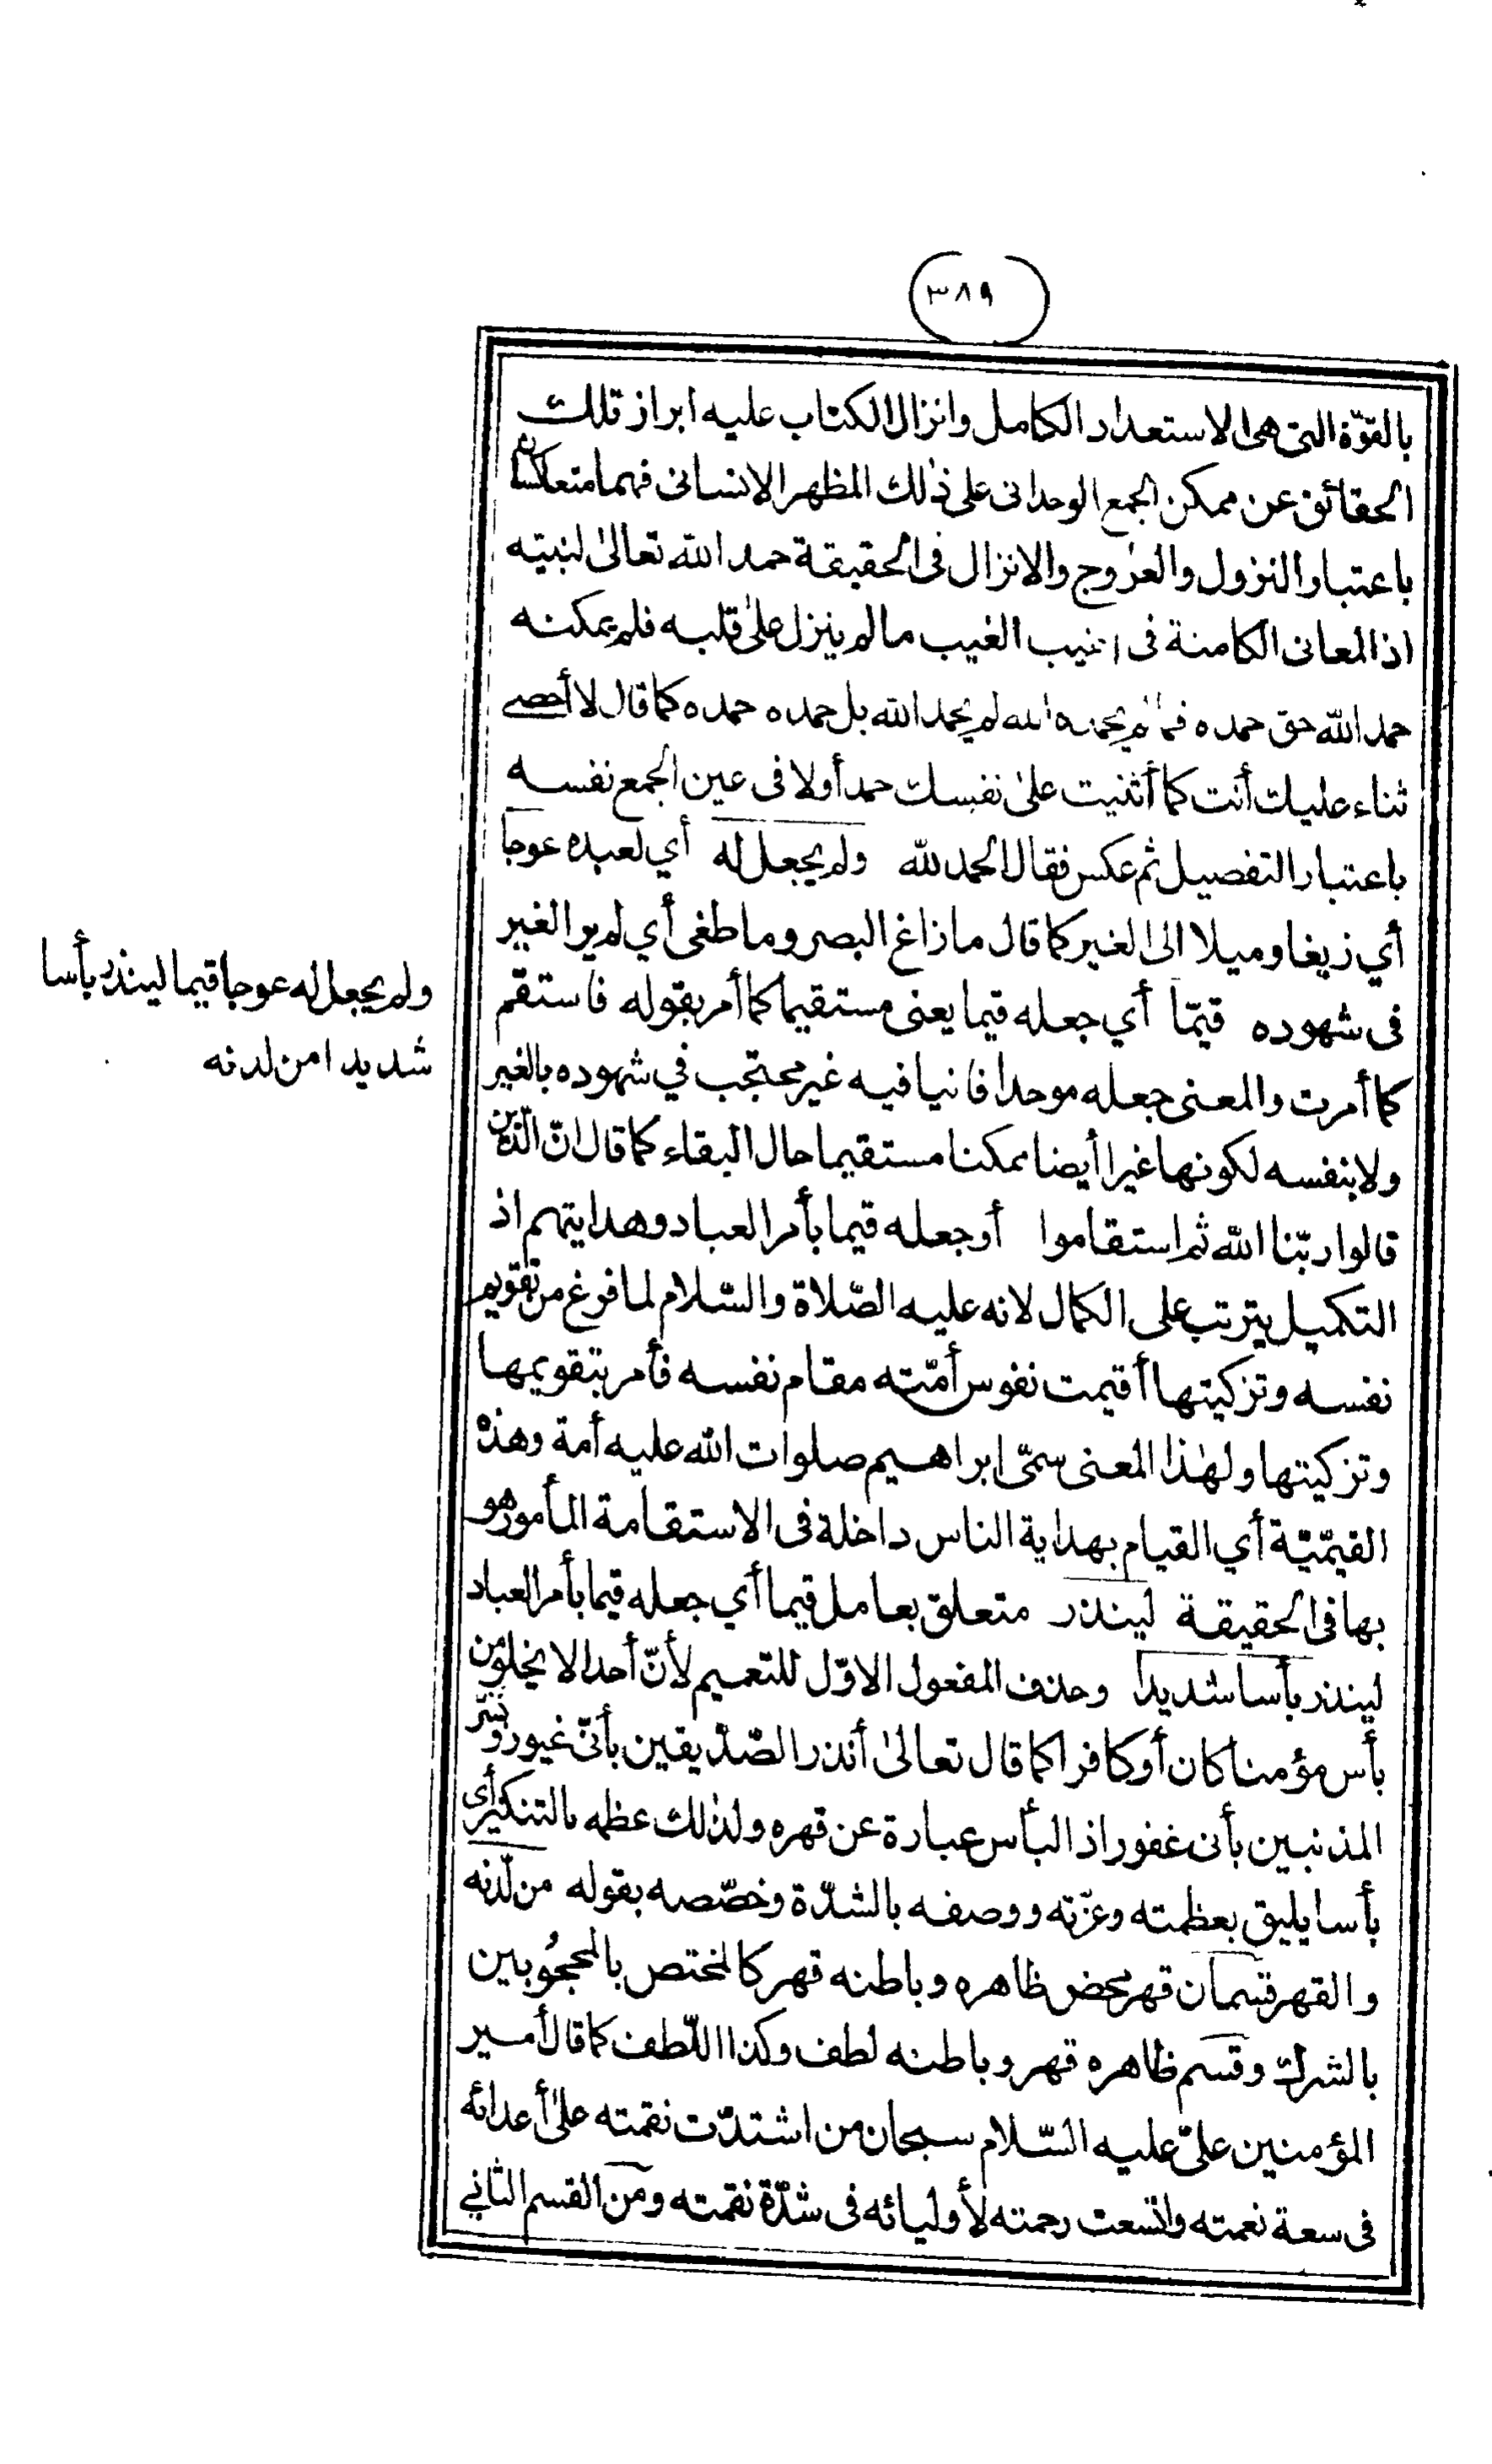 ٣٨٩
بالقوّة التى هى الاستعداد الكامل وانزال الكتاب عليه ابراز تلك
الحقائق عن ممكن الجمع الوحدانى على ذٰلك المظهر الانسانى فهما متعاكسان
باعتبار النزول والعروج والانزال فى الحقيقة حمد الله تعالىٰ لنبيّه
اذ المعانى الكامنة فى غيب الغيب مالم ينزل علىٰ قلبه فلم يمكنه
حمد الله حق حمده فما لم يحمده الله لم يحمد الله بل حمده حمده كما قال لا أحصى
ثناء عليك أنت كما أثنيت علىٰ نفسك حمد أولا فى عين الجمع نفسه
باعتبار التفصيل ثم عكس فقال الحمد لله ولم يجعل له أي لعبده عوجا
أي زيغا وميلا الى الغير كما قال ما زاغ البصر وما طغى أي لم ير الغير
فى شهوده قيّما أي جعله قيما يعنى مستقيما كما أمر بقوله فاستقم
كما أمرت والمعنى جعله موحدا فانيا فيه غير محتجب في شهوده بالغير
ولا بنفسه لكونها غيرا أيضا ممكنا مستقيما حال البقاء كما قال انّ الّذين
قالوا ربّنا الله ثم استقاموا أو جعله قيما بأمر العباد وهدايتهم اذ
التكميل يترتب على الكمال لانه عليه الصّلاة والسّلام لما فرغ من تقويم
نفسه وتزكيتها أقيمت نفوس أمّته مقام نفسه فأمر بتقويمها
وتزكيتها ولهٰذا المعنى سمّى ابراهيم صلوات الله عليه أمة وهذه
القيّميّة أي القيام بهداية الناس داخلة فى الاستقامة المأمور هو
بها فى الحقيقة لينذر متعلق بعامل قيما أي جعله قيما بأمر العباد
لينذر بأسا شديدا وحذف المفعول الاوّل للتعميم لأنّ أحدا لا يخلو من
بأس مؤمنا كان أو كافرا كما قال تعالىٰ أنذر الصّدّيقين بأنّى غيور وبشّر
المذنبين بأنى غفور اذ البأس عبارة عن قهره ولذٰلك عظمه بالتنكير أى
بأسا يليق بعظمته وعزّته ووصفه بالشدّة وخصّصه بقوله من لّدنه
والقهر قسمان قهر محض ظاهره وباطنه قهر كالمختص بالمحجوبين
بالشرك وقسم ظاهره قهر وباطنه لطف وكذا اللّطف كما قال أمير
المؤمنين علىّ عليه السّلام سبحان من اشتدّت نقمته علىٰ أعدائه
فى سعة نعمته واتّسعت رحمته لأوليائه فى شدّة نقمته ومن القسم الثّاني
ولم يجعل له عوجا قيما لينذر بأسا
شديدا من لدنه